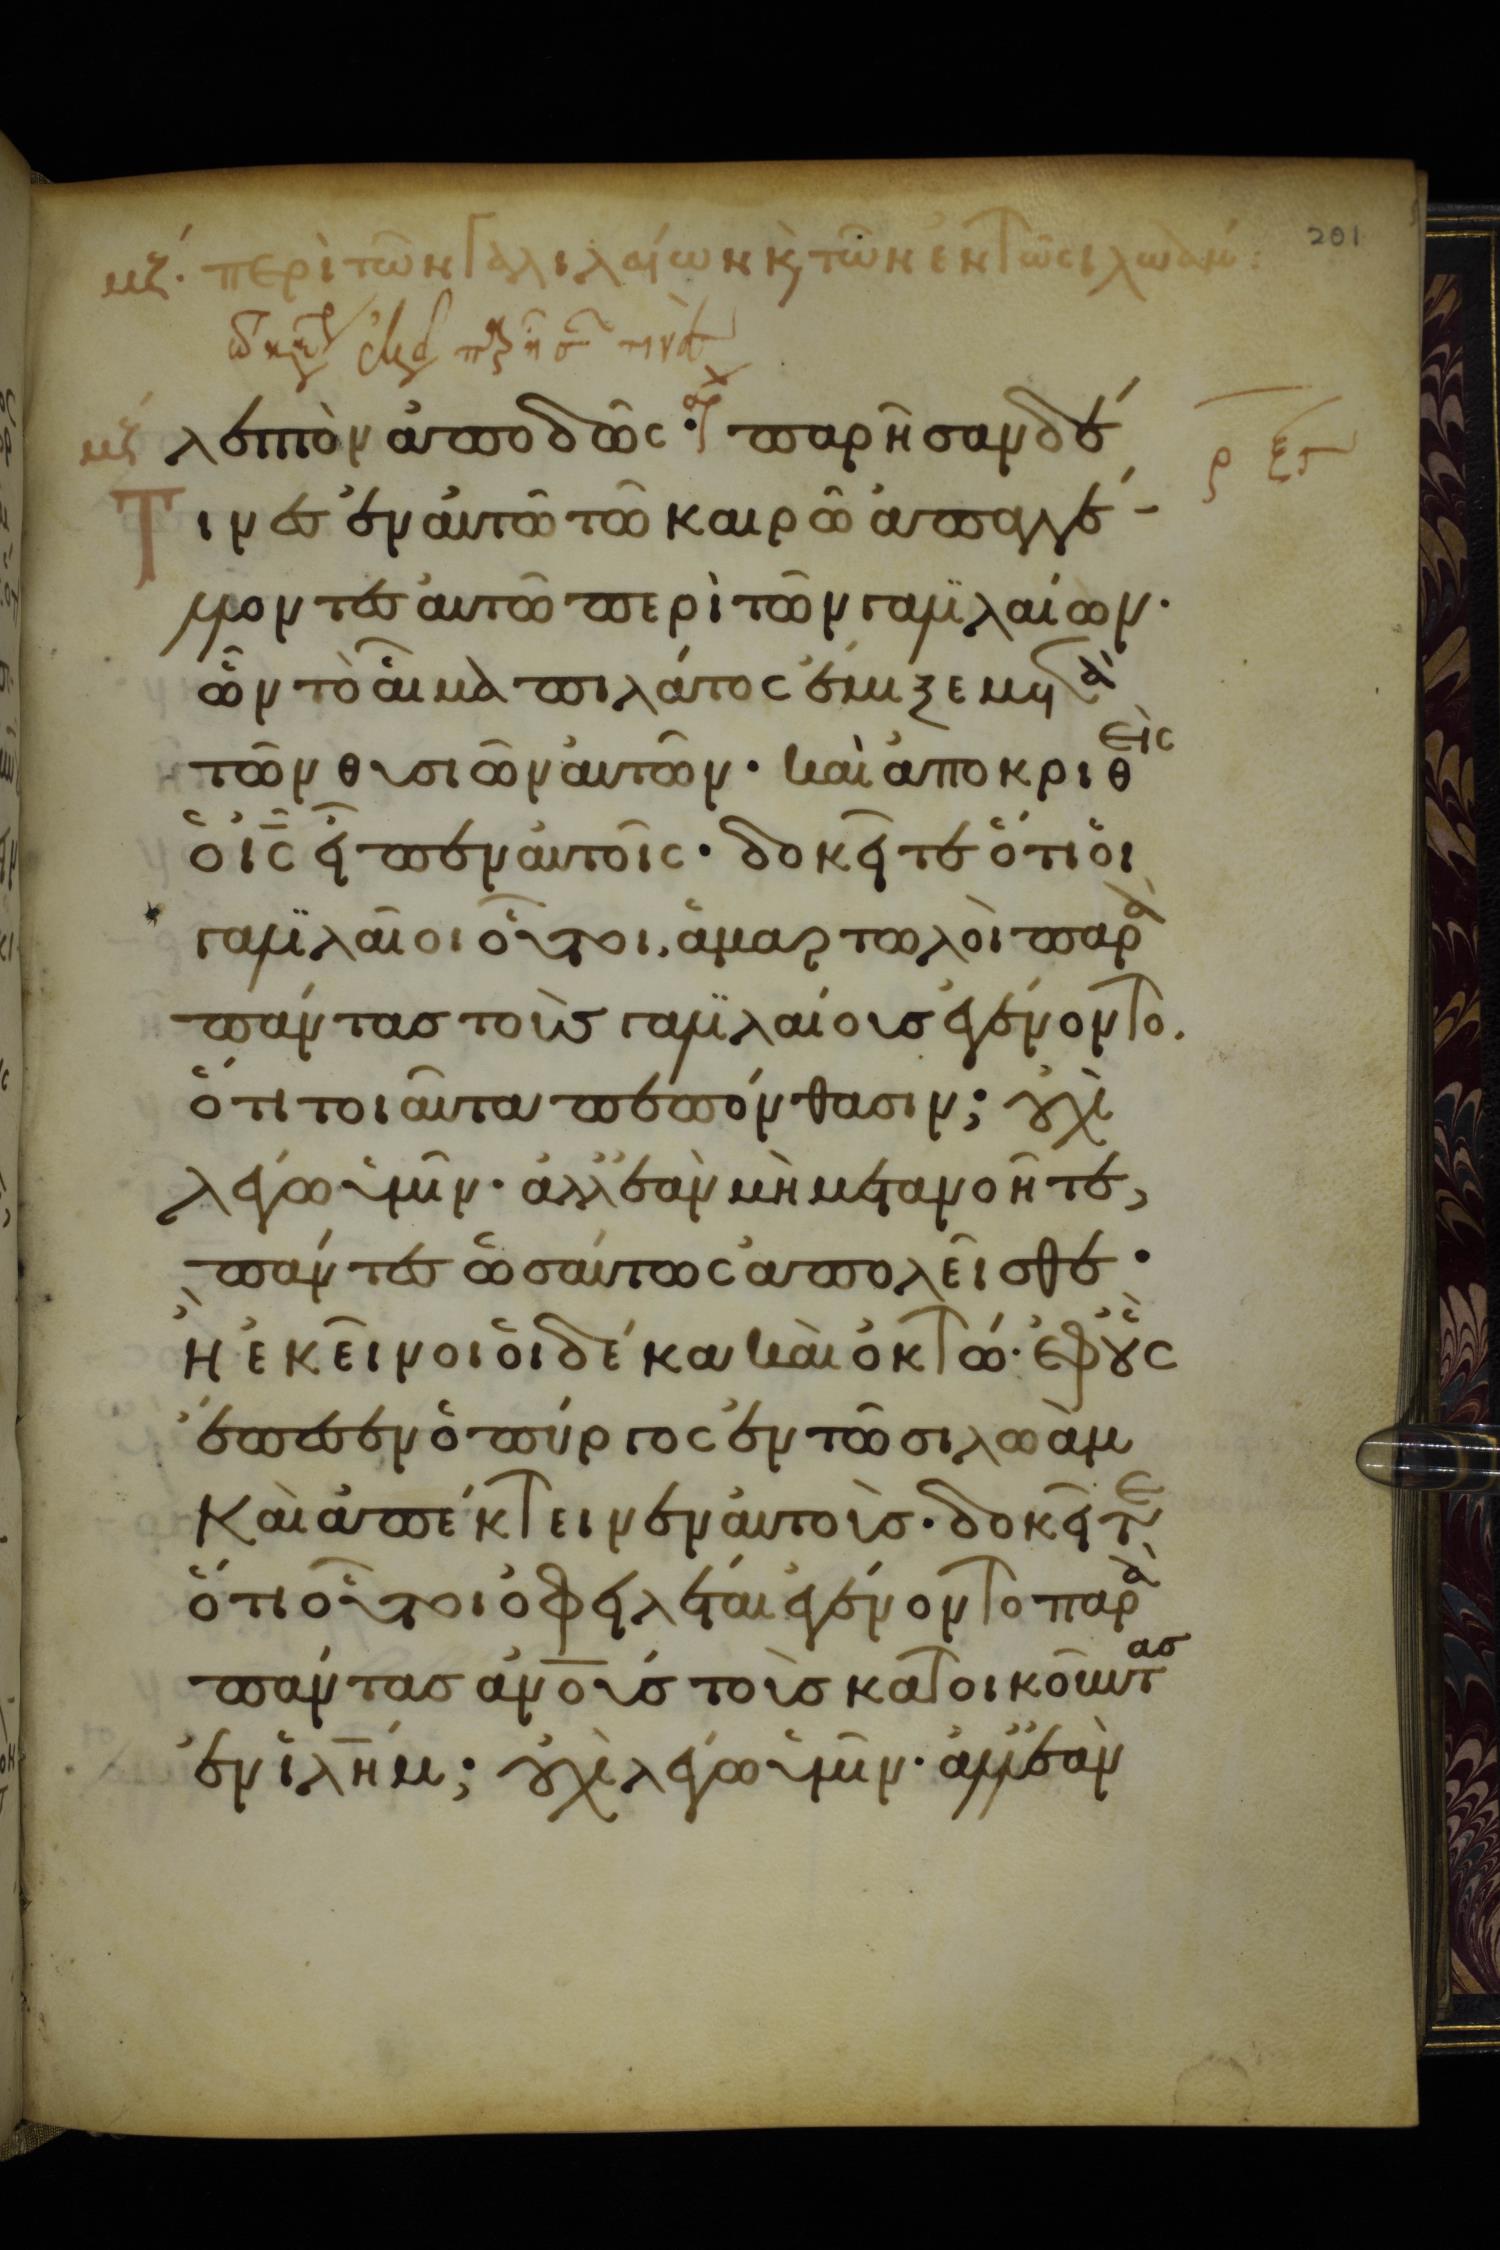 201
μζ. περὶ τῶν Γαλιλαίων κ, τῶν ἐν Τῶ σιλωὰμ:
μζ λεπτὸν ἀποδῶς· παρῆσαν δέ
Τινες ἐν αὐτῶ τῶ καιρῶ ἀπαγγέ-
λλοντες αὐτῶ περὶ τῶν γαλιλαίων·
ὧν τὸ αἷμα πιλάτος ἔμιξε μετὰ
τῶν θυσιῶν αὐτῶν· καὶ ἀποκριθεὶς
ὁ ις εἶπεν αὐτοῖς· δοκεῖτε ὅτι οἱ
γαλιλαῖοι οὗτοι, ἁμαρτωλοὶ παρὰ
πάντας τοὺς γαλιλαίους ἐγένοντο.
ὅτι τοιαῦτα πεπόνθασιν; οὐχὶ
λέγω ὑμῖν· ἀλλ' ἐὰν μὴ μετανοῆτε,
πάντες ὡσαύτως ἀπολεῖσθε·
ἢ ἐκεῖνοι οἱ δέκα καὶ ὀκτώ· ἐφ' οὓς
ἔπεσεν ὁ πύργος ἐν τῶ σιλωὰμ
καὶ ἀπέκτεινεν αὐτοὺς· δοκεῖτε
ὅτι οὗτοι ὀφειλέται ἐγένοντο παρὰ
πάντας ανους τοὺς κατοικοῦντας
ἐν ιλημ; οὐχὶ λέγω ὑμῖν· ἀλλ' ἐὰν